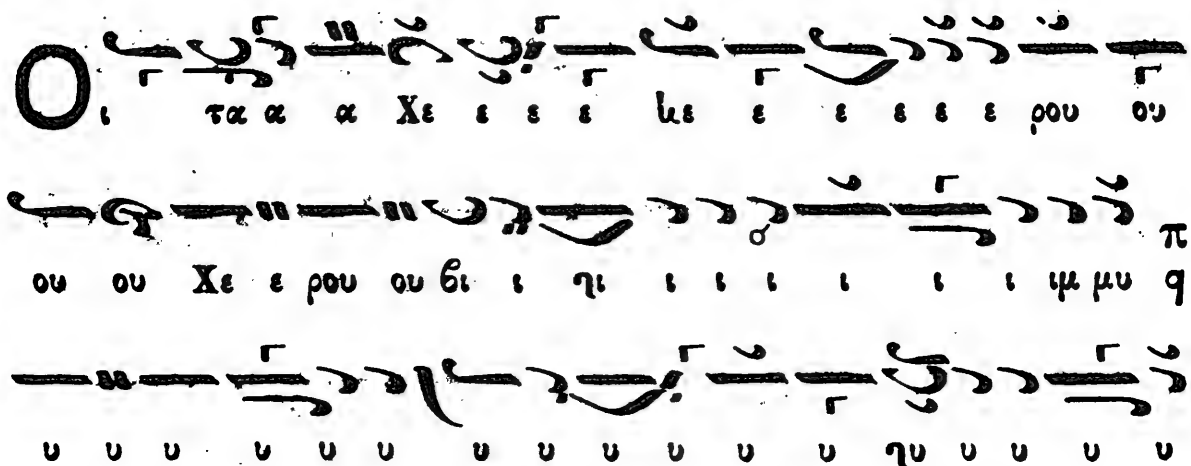 Οι τα α α Χε ε ε ε κε ε ε ε ε ε ρου ου
ου ου Χε ε ρου ου βι ι νι ι ι ι ι ι ι ιμ μυ π q
υ υ υ υ υ υ υ υ υ υ υ υ νυ υ υ υ υ